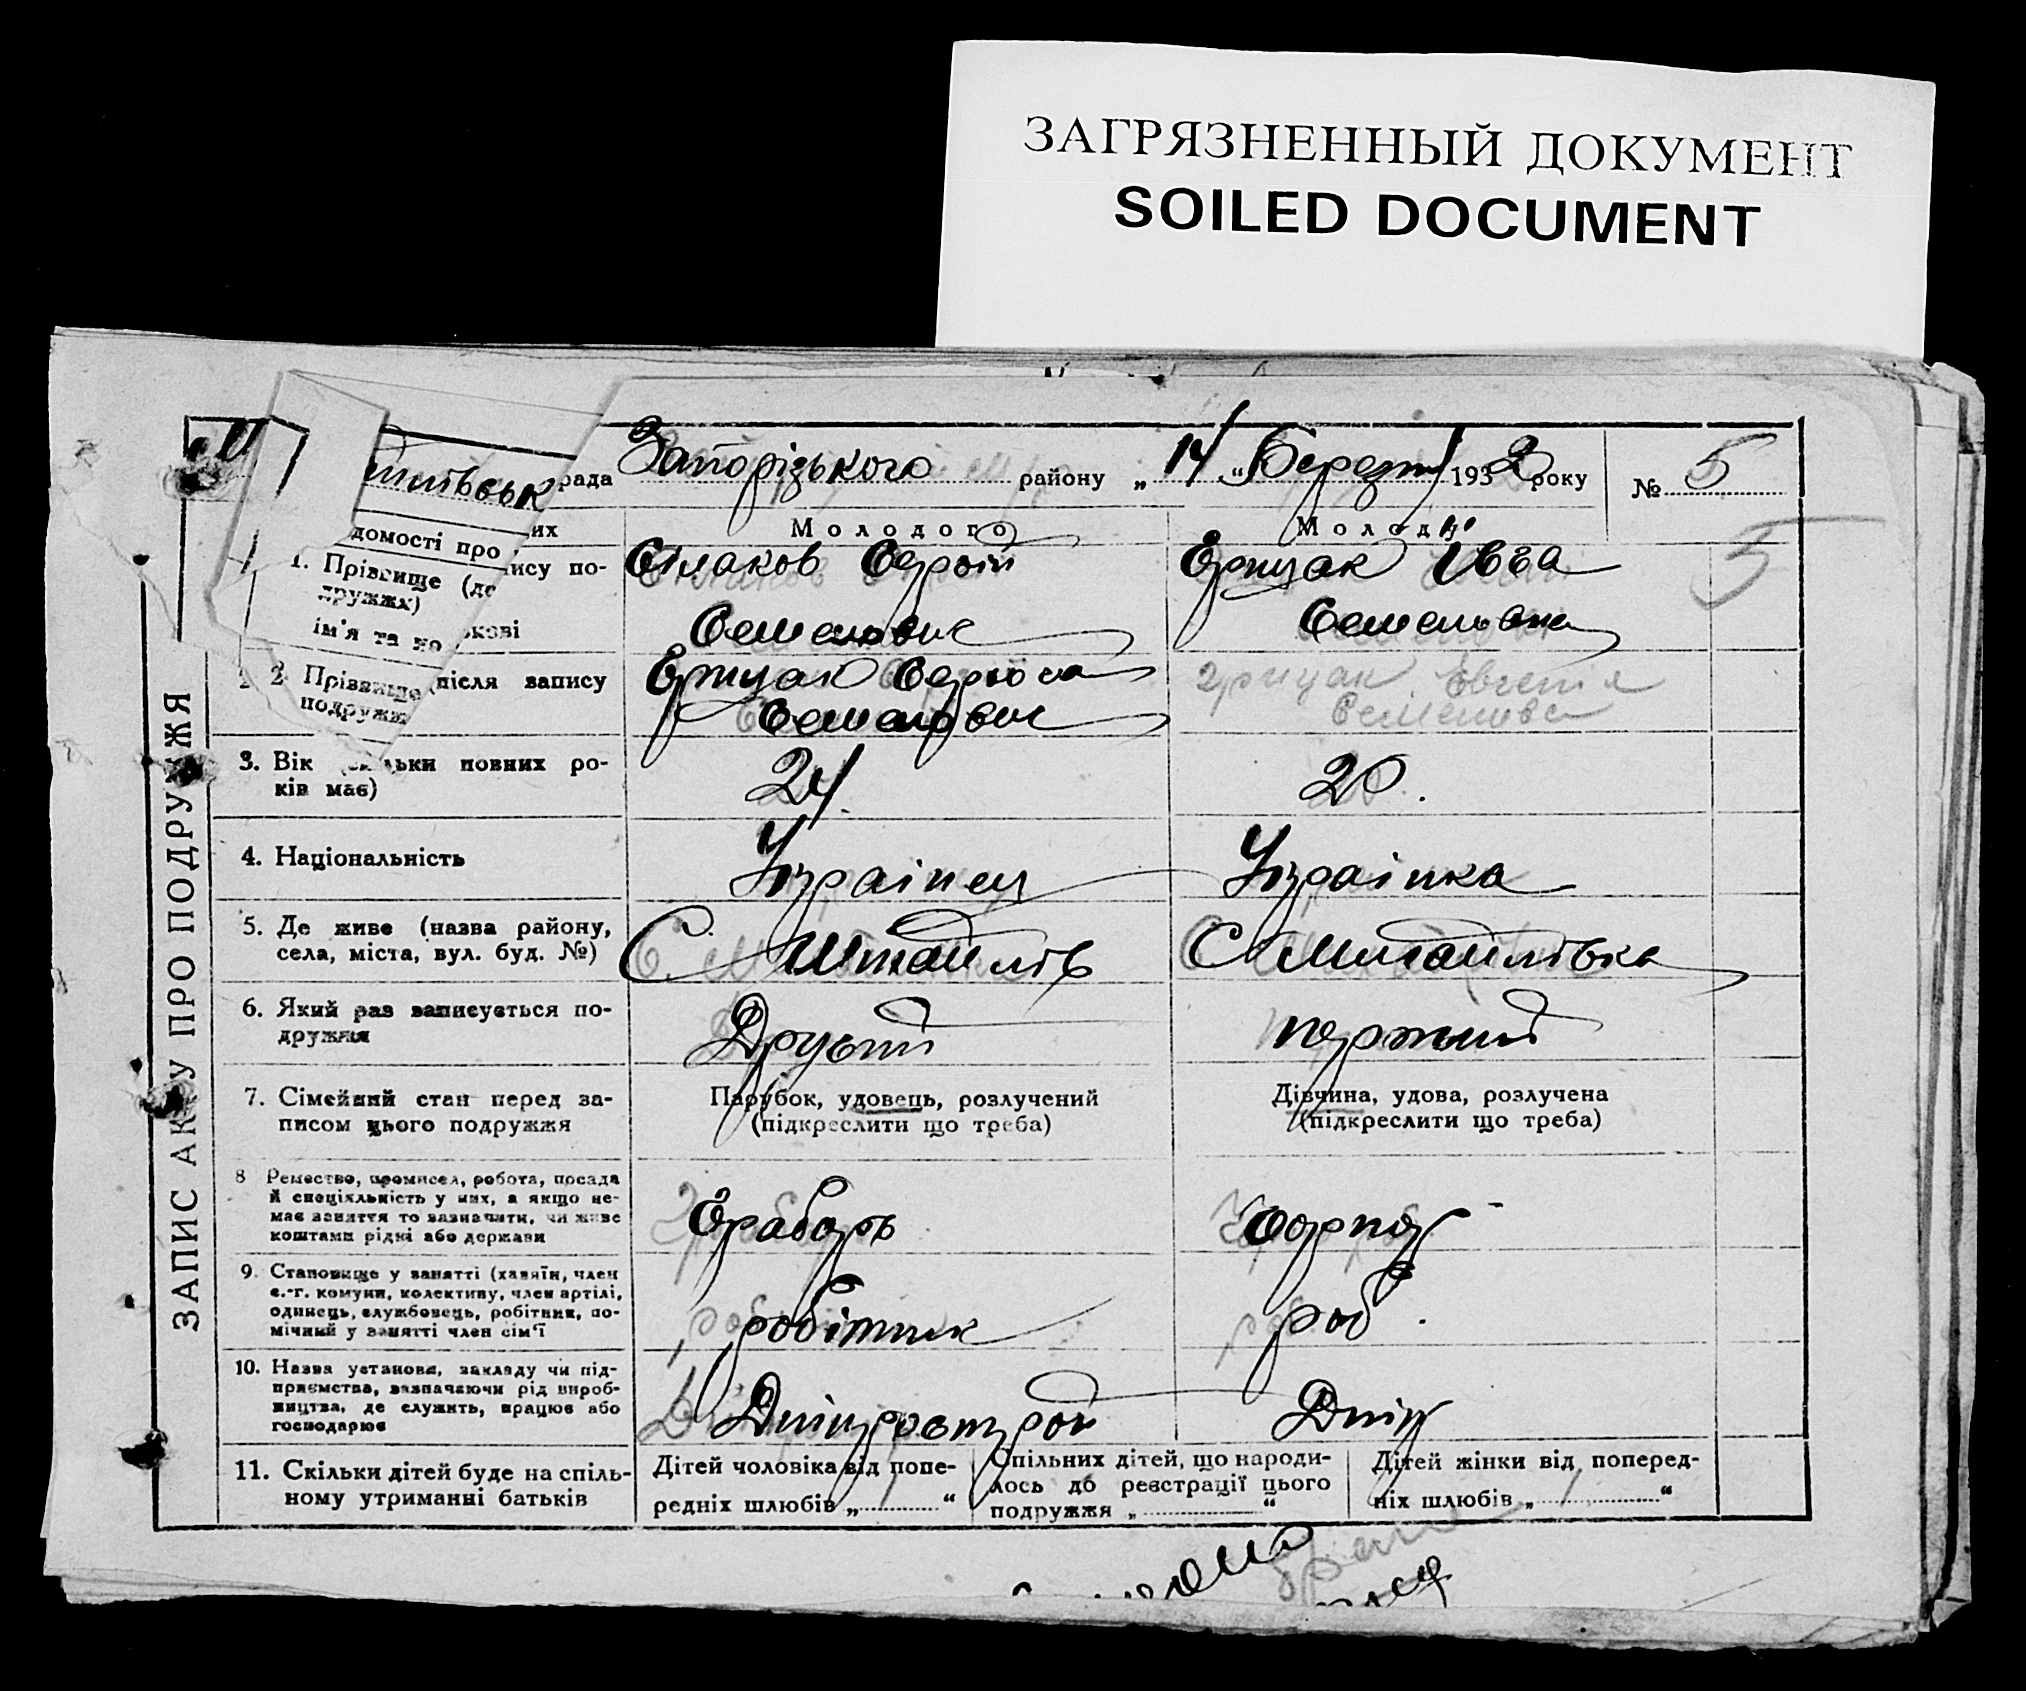 ЗАГРЯЗНЕННЫЙ ДОКУМЕНТ
SOILED DOCUMENT
рада Запорізького району „14“ Березня 1932 року № 5
домості про них
Молодого
Молодої
5
1. Прізвище (до запису по-
дружжя)
ім'я та по
Сілаков Сергій
Семенович
Грицак Івга
Семенівна
2. Прізвище після запису
подружж
Грицак
Семенович
Грицак Євгенія
Семенівна
3. Вік (скільки повних ро-
ків має)
24
20.
4. Національність
Українец
Українка
5. Де живе (назва району,
села, міста, вул. буд. №)
С.
С Михайлівка
6. Який раз записується по-
дружжя
Другий
первий
7. Сімейний стан перед за-
писом цього подружжя
Парубок, удовець, розлучений
(підкреслити що треба)
Дівчина, удова, розлучена
(підкреслити що треба)
8 Ремество, промисел, робота, посада
й спеціяльність у них, а якщо не-
має заняття то зазначити, чи живе
коштами рідні або держави
Грабарь
9. Становище у занятті (хазяїн, член
с.-г. комуни, колективу, член артілі,
одинець, службовець, робітник, по-
мічний у занятті член сім'ї
робітник
роб.
10. Назва установи, закладу чи під-
приємства, зазначаючи рід вироб-
ництва, де служить, працює або
господарює
Дніпрострой
Дніп
11. Скільки дітей буде на спіль-
ному утриманні батьків
Дітей чоловіка від попе-
редніх шлюбів „ “
Спільних дітей, що народи-
лось до реєстрації цього
подружжя „ “
Дітей жінки від поперед-
ніх шлюбів „ “
ЗАПИС АКТУ ПРО ПОДРУЖЖЯ